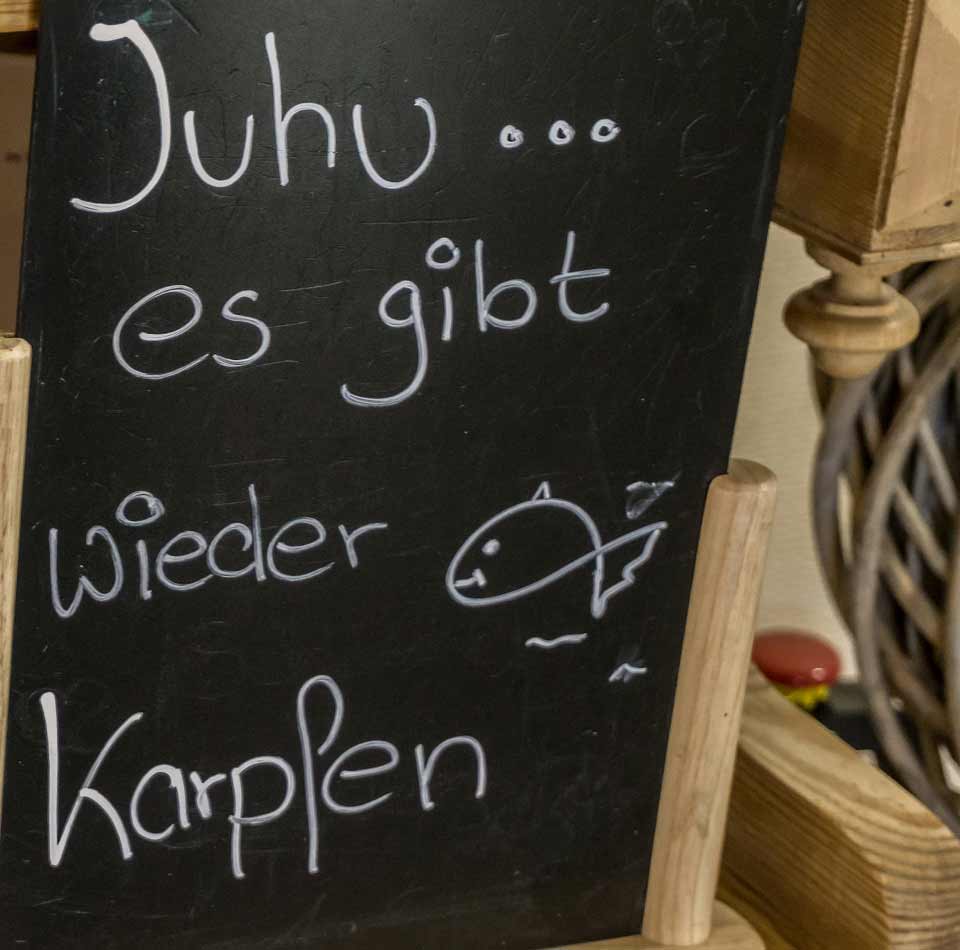 Juhu ...
es gibt
wieder
Karpfen